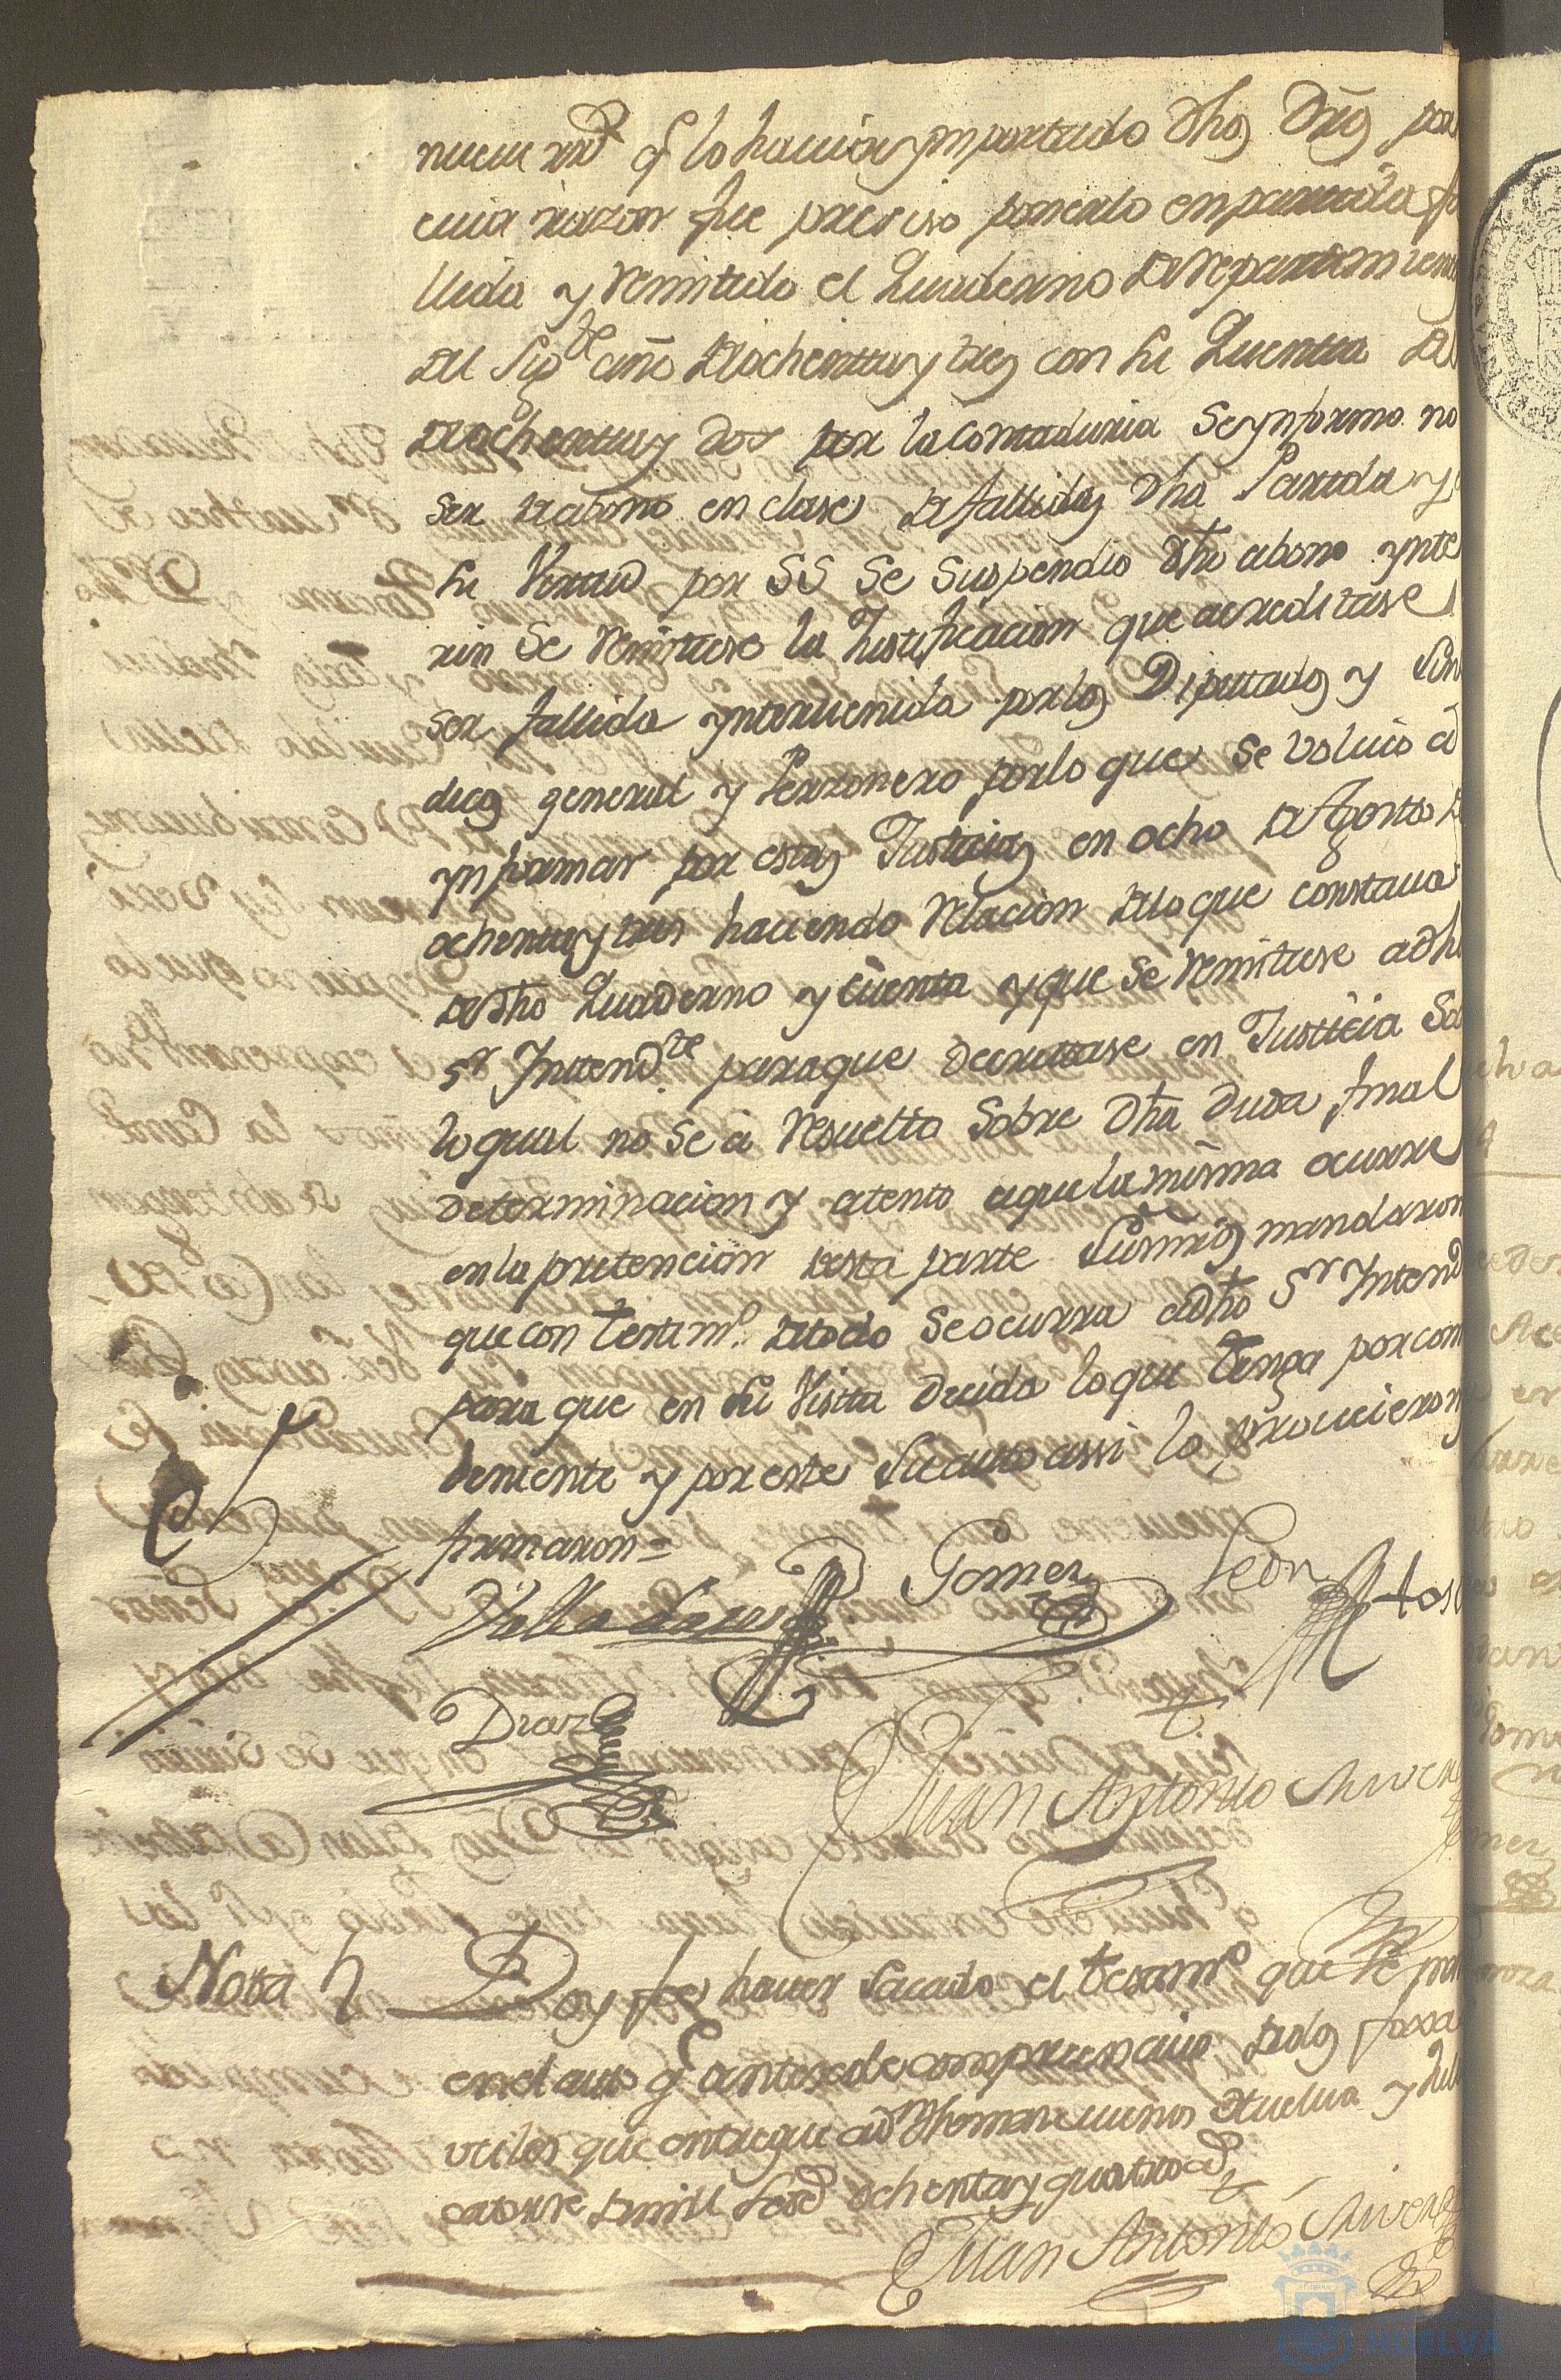 nueue rr.^s q.^e lo hauian ymportado dhos Dros por
cuia razon fue preciso ponerlo en partida fa
llida y remitido el Quaderno de repartimient
del Sig.^te año de ochenta y tres con su Quenta de
de ochenta y dos por la Contaduria se ynformo no
ser de abono en clase de fallidas dha Partida y
su Virtud por SS se suspendio dho abono ynte
rin se remitiese la Justificacion que acreditase
ser fallida yntervenida por los Diputados y Sin
dicos general y Perzonero por lo que se voluio a
ynformar por estas Justicias en ocho de Agosto de
ochenta y tres haciendo relacion de lo que constaua
de dho Quaderno y cuenta y que se remitiese a dho
s.^r Intend.^te para que decretase en Justicia So
lo qual no se a resuelto sobre dha duda final
determinacion y atento a que la misma ocurre
en la pretencion desta parte Sus mrds mandaron
que con testim.^o de todo se ocurra a dho S.^r Intend
para que en su Vista decida lo que tenga por com
beniente y por este su auto assi lo proueieron
firmaron =
Valladares Gomez Leon
Diaz
Juan Antonio
Nota Doy fee hauer sacado el testim.^o que se pre
en el auto q.^e antesede comprencivo de dos foxas
utiles que entregue a d.^n Thomas
catorze de mill set.^s ochenta y quatro a.^s
Juan Antonio
HUELVA